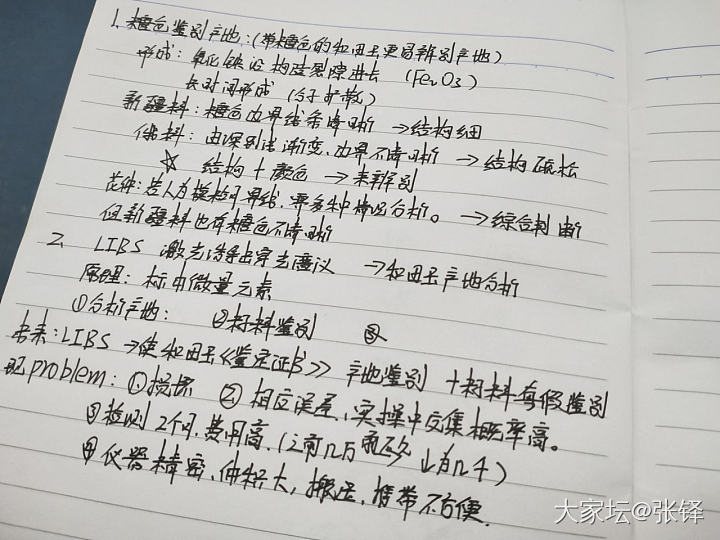 1、糖色鉴别产地：(带糖色的和田玉更易辨别产地)
形成：氧化铁沿构造裂隙进长 (Fe₂O₃)
长时间形成 (分子扩散)
新疆料：糖色边界线条清晰 →结构细
俄料：由深到浅渐变，边界不清晰 →结构疏松
☆ 结构＋颜色 → 来辨别
若人为模糊了界线，要多种情况分析。 →综合判断
但新疆料也有糖色不清晰
2、LIBS 激光诱导击穿光谱仪 →和田玉产地分析
原理：标由微量元素
①分析产地： ②材料鉴别 ③
未来：LIBS →使和田玉《鉴定证书》 产地鉴别 ＋材料真假鉴别
现problem：①损坏 ②相应误差，实操中交集概率高。
③检测2个月，费用高，(之前几万 ↓为几千)
④仪器精密、体积大，搬运，携带不方便.
大家坛@张铎